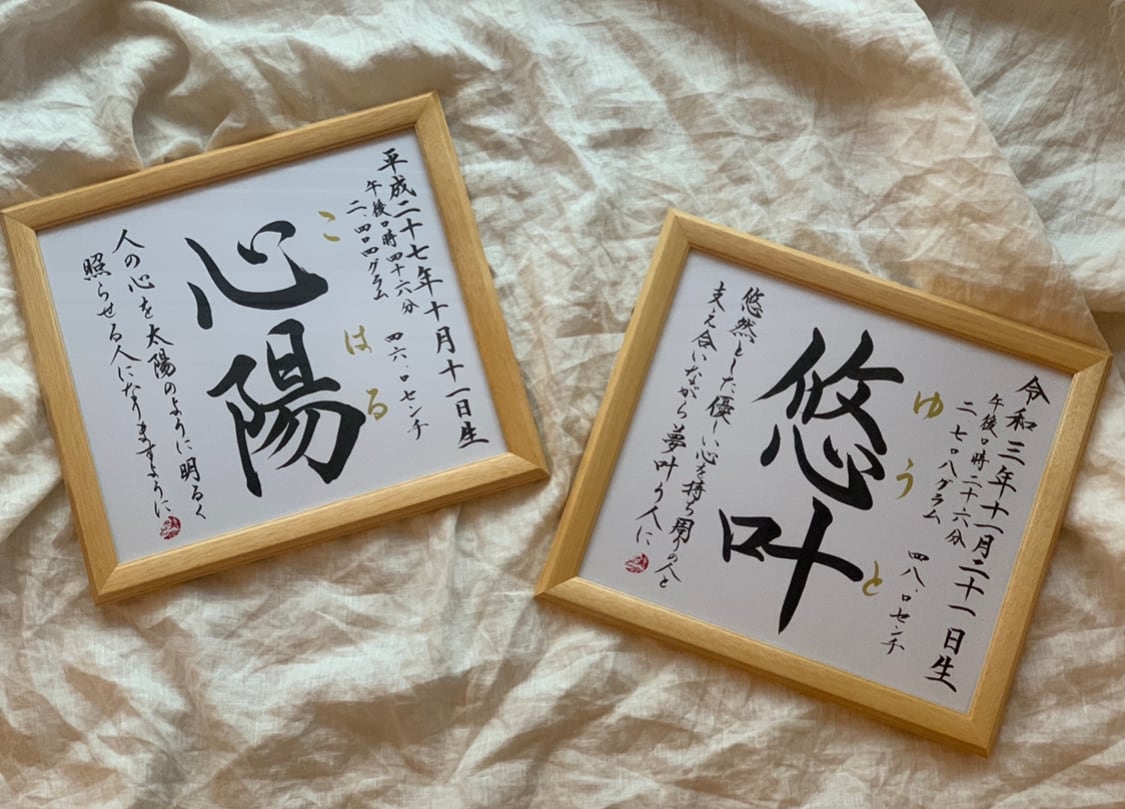 平成二十七年十月十一日生
午後〇時四十六分
二.四〇四グラム 四六.〇センチ
こはる
心陽
人の心を太陽のように明るく
照らせる人になりますように
令和三年十一月二十一日生
午後〇時二十六分
二.七〇八グラム 四八.〇センチ
ゆうと
悠叶
悠然とした優しい心を持ち周りの人と
支え合いながら夢叶う人に